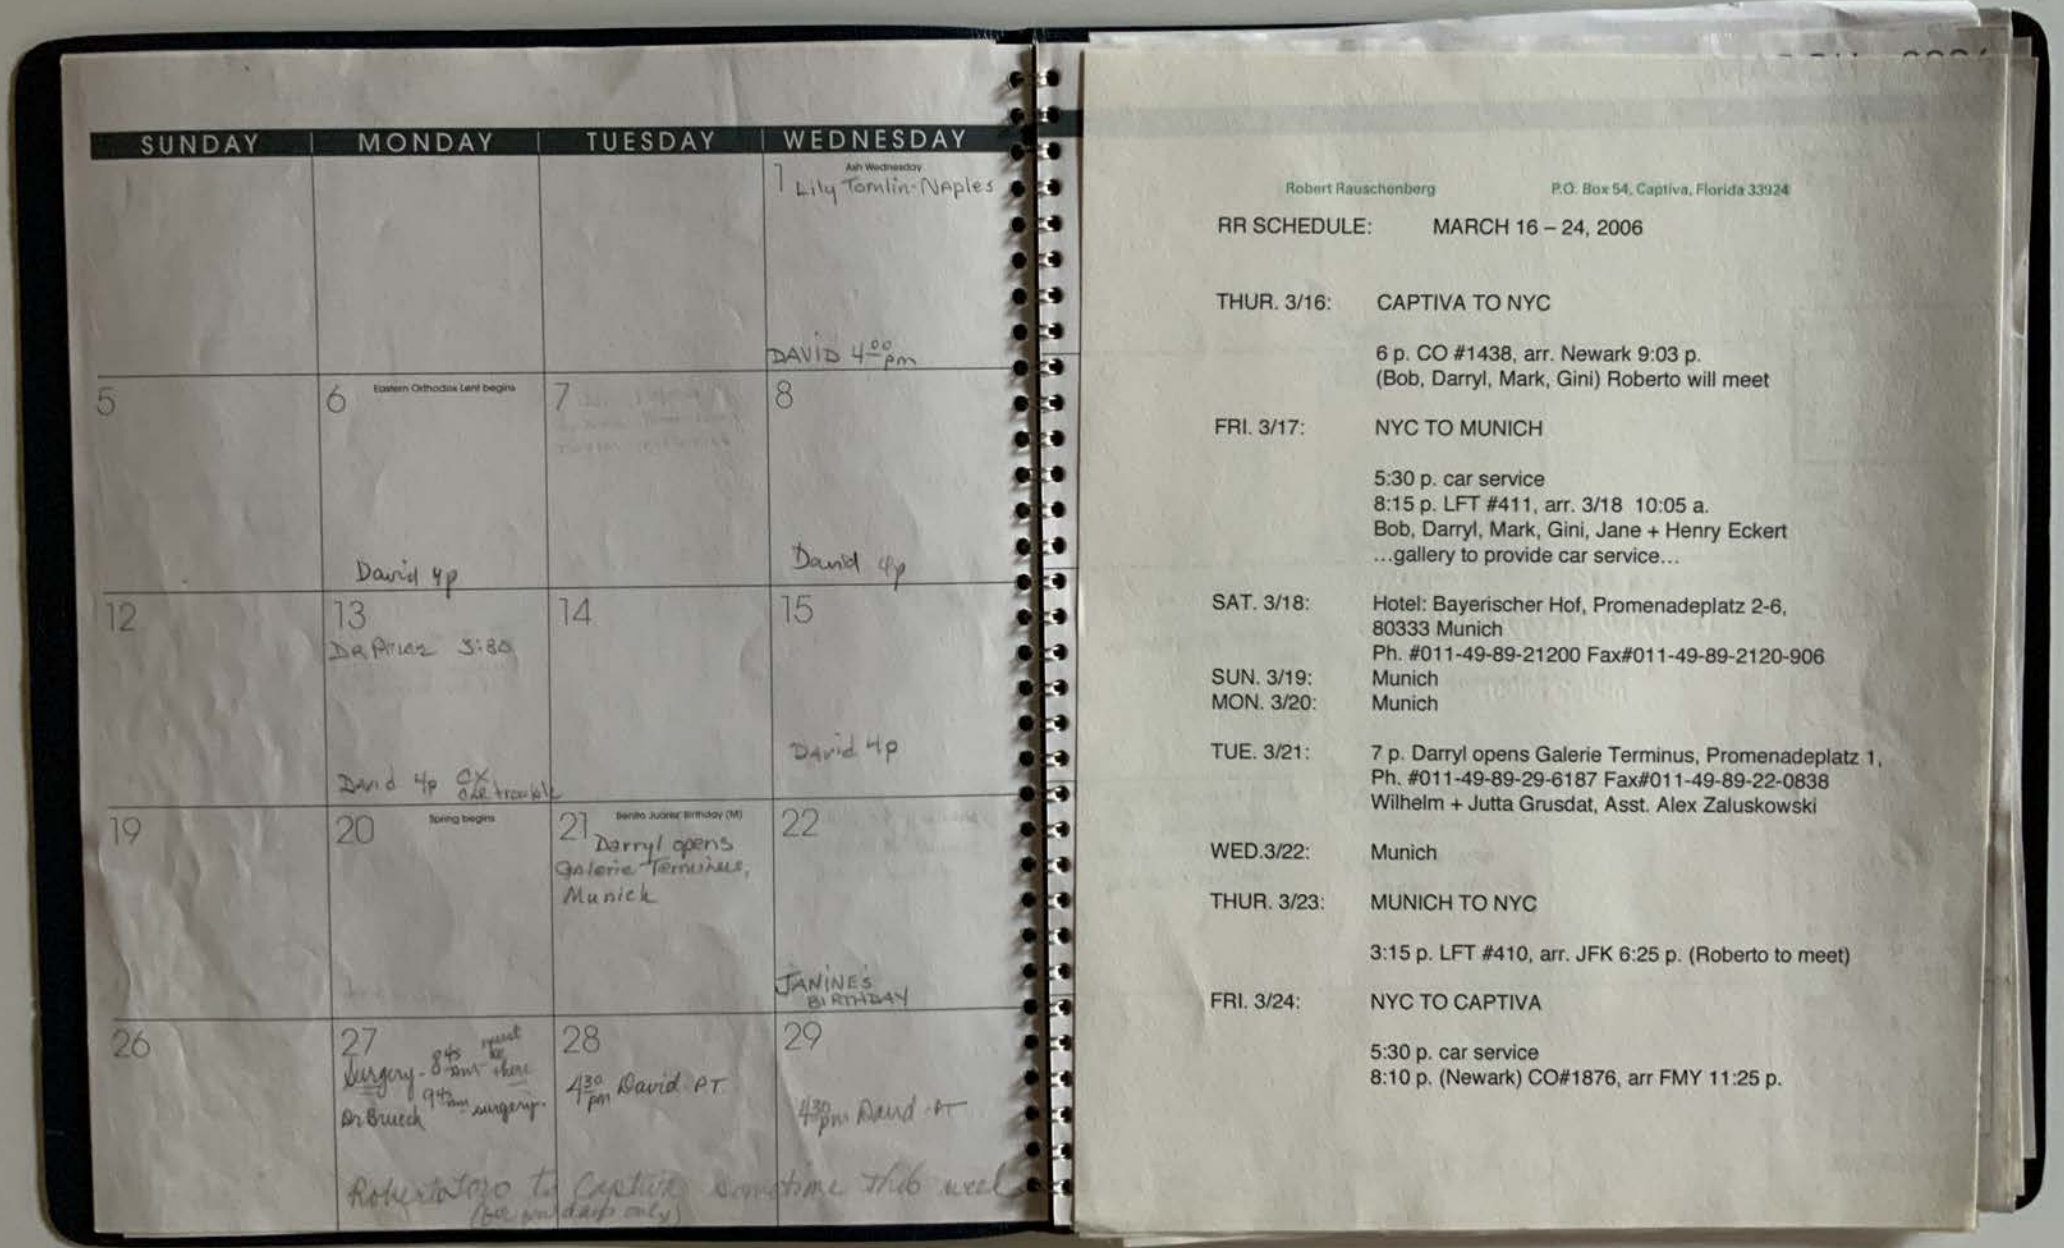 SUNDAY MONDAY TUESDAY WEDNESDAY
1 Ash Wednesday
Lily Tomlin-Naples
DAVID 4:00 pm
5
6 Eastern Orthodox Lent begins
David 4p
7
8
David 4p
12
13
3:30
David 4p CX
car trouble
14
15
David 4p
19
20 Spring begins
21 Benito Juarez' Birthday (M)
Darryl opens
Galerie Terminus,
Munich
22
JANINE'S
BIRTHDAY
26
27
Surgery - 8:45 am must be there
9:45 am surgery.
Dr Brueck
28
4:30 pm David P.T.
29
4:30 pm David PT
to Captiva sometime this week
days only)
Robert Rauschenberg P.O. Box 54, Captiva, Florida 33924
RR SCHEDULE: MARCH 16 – 24, 2006
THUR. 3/16: CAPTIVA TO NYC
6 p. CO #1438, arr. Newark 9:03 p.
(Bob, Darryl, Mark, Gini) Roberto will meet
FRI. 3/17: NYC TO MUNICH
5:30 p. car service
8:15 p. LFT #411, arr. 3/18 10:05 a.
Bob, Darryl, Mark, Gini, Jane + Henry Eckert
...gallery to provide car service...
SAT. 3/18: Hotel: Bayerischer Hof, Promenadeplatz 2-6,
80333 Munich
Ph. #011-49-89-21200 Fax#011-49-89-2120-906
SUN. 3/19: Munich
MON. 3/20: Munich
TUE. 3/21: 7 p. Darryl opens Galerie Terminus, Promenadeplatz 1,
Ph. #011-49-89-29-6187 Fax#011-49-89-22-0838
Wilhelm + Jutta Grusdat, Asst. Alex Zaluskowski
WED.3/22: Munich
THUR. 3/23: MUNICH TO NYC
3:15 p. LFT #410, arr. JFK 6:25 p. (Roberto to meet)
FRI. 3/24: NYC TO CAPTIVA
5:30 p. car service
8:10 p. (Newark) CO#1876, arr FMY 11:25 p.